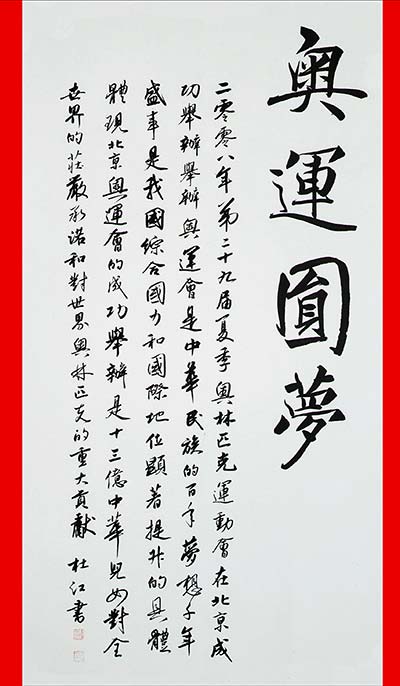 奧運圓夢
二零零八年第二十九届夏季奧林匹克運動會在北京成
功舉辦舉辦奧運會是中華民族的百年夢想千年
盛事是我國綜合國力和國際地位顯著提升的具體
體現北京奧運會的成功舉辦是十三億中華兒女對全
世界的莊嚴承諾和對世界奧林匹克的重大貢獻 杜江書